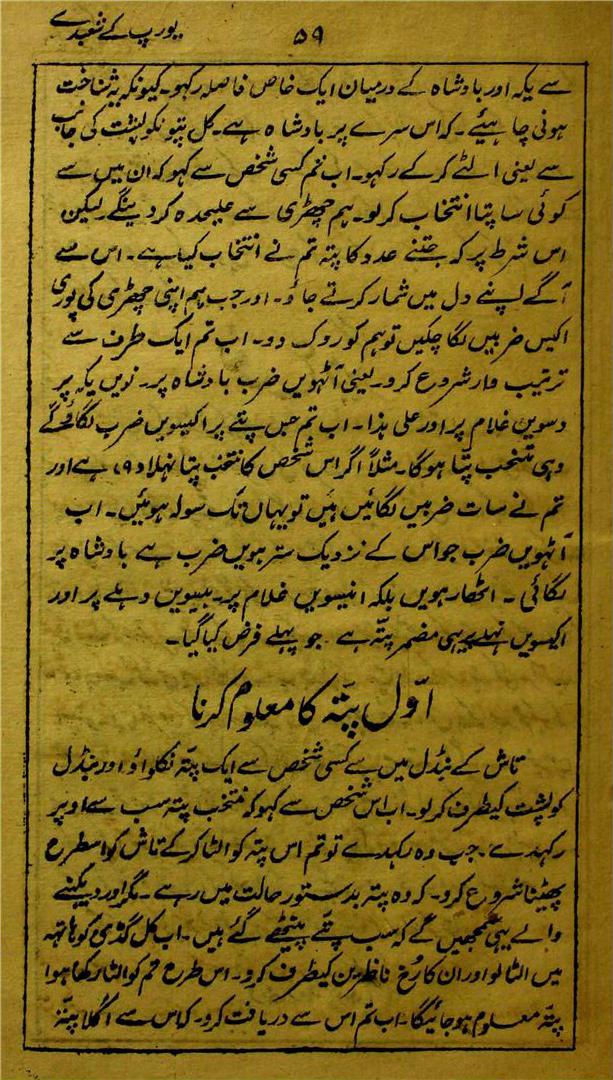 یورپ کے شعبدے
۵۹
سے یکہ اور بادشاہ کے درمیان ایک خاص فاصلہ رکہو۔ کیونکہ یہ شناخت
ہونی چاہیئے۔ کہ اس سرے پر بادشاہ ہے۔ کل پتونکو پشت کی جانب
سے یعنی الٹے کرکے رکہو۔ اب تم کسی شخص سے کہو کہ ان میں سے
کوئی سا پتا انتخاب کر لو۔ ہم چھڑی سے علیحدہ کر دینگے لیکن
اس شرط پر کہ جتنے عدد کا پتہ تم نے انتخاب کیا ہے۔ اس سے
آگے اپنے دل میں شمار کرتے جاؤ۔ اور جب ہم اپنی چھڑی کی پوری
اکیس ضربیں لگا چکیں تو ہم کو روک دو۔ اب تم ایک طرف سے
ترتیب وار شروع کرو۔ یعنی آٹھویں ضرب بادشاہ پر۔ نویں یکہ پر
دسویں غلام پر اور علی ہذا۔ اب تم جس پتے پر اکیسویں ضرب لگاؤگے
وہی منتخب پتا ہوگا۔ مثلاً اگر اس شخص کا منتخب پتا نہلا (۹) ہے اور
تم نے سات ضربیں لگائیں ہیں تو یہاں تک سولہ ہوئیں۔ اب
آٹھویں ضرب جو اس کے نزدیک سترہویں ضرب ہے بادشاہ پر
لگائی۔ اٹھارہویں بلکہ انیسویں غلام پر۔ بیسویں دہلے پر اور
اکیسویں نہلے پر یہی مضمر پتہ ہے جو پہلے فرض کیا گیا۔
اوّل پتّہ کا معلوم کرنا
تاش کے بنڈل میں سے کسی شخص سے ایک پتہ نکلواؤ اور بنڈل
کو پشت کیطرف کر لو۔ اب اس شخص سے کہو کہ منتخب پتہ سب سے اوپر
رکہدے۔ جب وہ رکہدے تو تم اس پتہ کو الٹا کرکے تاش کو اسطرح
پھیٹنا شروع کرو۔ کہ وہ پتہ بدستور حالت میں رہے۔ مگر اور دیکہنے
والے یہی سمجھیں گے کہ سب پتے پیٹھے گئے ہیں۔ اب کل گڈی کو ہاتہہ
میں الٹا لو اور ان کا رُخ ناظرین کیطرف کرو۔ اس طرح تم کو الٹا رکھا ہوا
پتہ معلوم ہو جائیگا۔ اب تم اس سے دریافت کرو۔ کہ اس سے اگلا پتہ